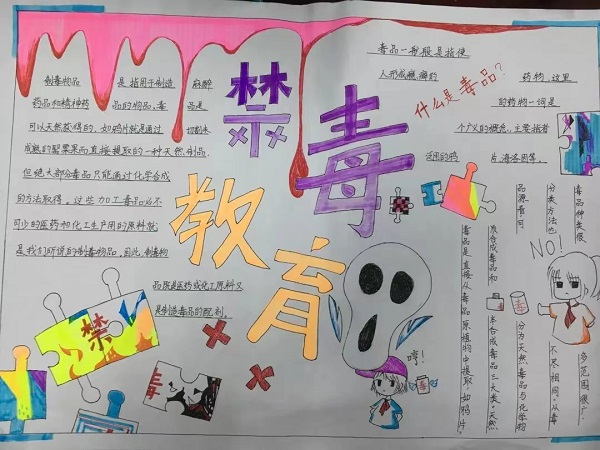 禁毒
教育
制毒物品 是指用于制造 麻醉
药品和精神药 品的物品,毒 品是
可以天然获得的,如鸦片就是通过 切割未
成熟的罂粟果而直接提取的一种天然制品,
但绝大部分毒品只能通过化学合成
的方法取得,这些加工毒品必不
可少的医药和化工生产用的原料就
是我们所说的制毒物品,因此,制毒物
品既是医药或化工原料又
是制造毒品的配剂。
什么是毒品?
毒品一般是指使
人形成瘾癖的 药物,这里
的药物一词是
个广义的概念,主要指吸
毒者滥用的鸦 片,海洛因等。
毒品种类很
多,范围很广,
分类方法也
不尽相同。从毒
品来源看,可
分为天然毒品与化学物
质合成毒品和
半合成毒品三大类。天然
毒品是直接从毒品原植物中提取,如鸦片。
NO!
毒
哼!
毒
禁
毒